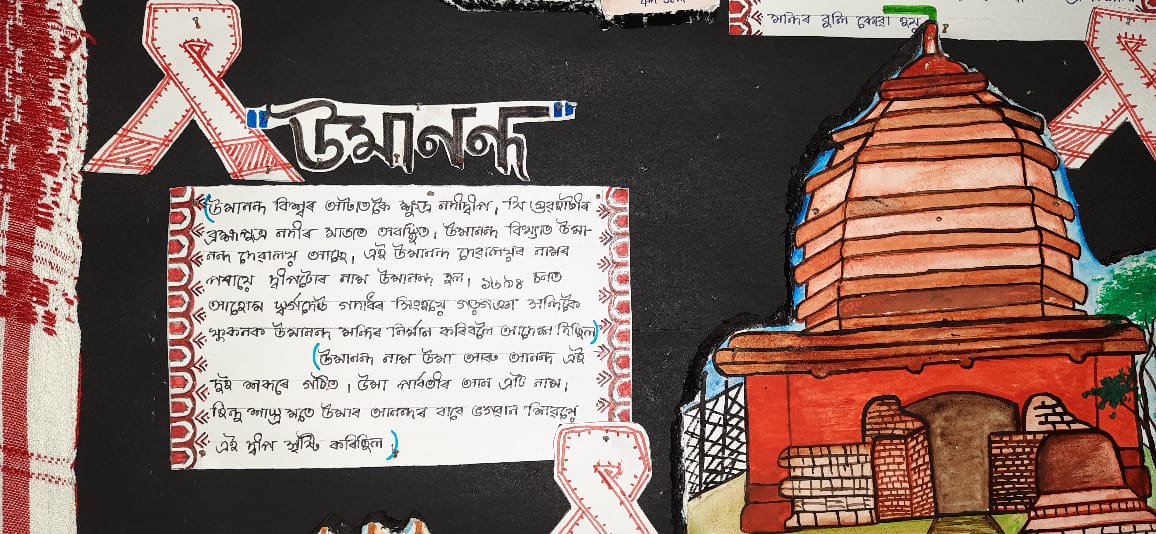 মন্দিৰ বুলি কোৱা হয়
"উমানন্দ"
উমানন্দ বিশ্বৰ আটাইতকৈ ক্ষুদ্ৰ নদীদ্বীপ, ই গুৱাহাটীৰ
ব্ৰহ্মপুত্ৰ নদীৰ মাজতে অবস্থিত, উমানন্দ বিখ্যাত উমা-
নন্দ দেৱালয় আছে, এই উমানন্দ দেৱালয়ৰ নামৰ
পৰায়ে দ্বীপটোৰ নাম উমানন্দ হ'ল, ১৬৯৪ চনত
আহোম স্বৰ্গদেউ গদাধৰ সিংহয়ে গড়গঞা সন্দিকৈ
ফুকনক উমানন্দ মন্দিৰ নিৰ্মান কৰিবলৈ আদেশ দিছিল
উমানন্দ নাম উমা আৰু আনন্দ এই
দুই শব্দৰে গঠিত, উমা পাৰ্বতীৰ আন এটি নাম,
হিন্দু শাস্ত্ৰ মতে উমাৰ আনন্দৰ বাবে ভগৱান শিৱয়ে
এই দ্বীপ সৃষ্টি কৰিছিল